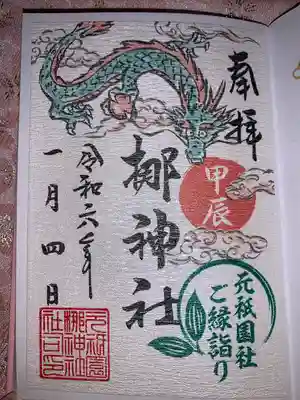 奉拝
甲辰
梛神社
令和六年
一月四日
元祇園社
ご縁詣り
元祇園
梛神社
社印